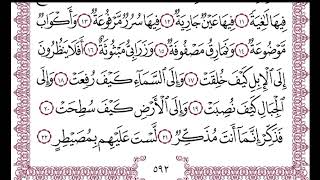 فِيهَا لَٰغِيَةً ١١ فِيهَا عَيْنٌ جَارِيَةٌ ١٢ فِيهَا سُرُرٌ مَّرْفُوعَةٌ ١٣ وَأَكْوَابٌ
مَّوْضُوعَةٌ ١٤ وَنَمَارِقُ مَصْفُوفَةٌ ١٥ وَزَرَابِيُّ مَبْثُوثَةٌ ١٦ أَفَلَا يَنظُرُونَ
إِلَى ٱلْإِبِلِ كَيْفَ خُلِقَتْ ١٧ وَإِلَى ٱلسَّمَآءِ كَيْفَ رُفِعَتْ ١٨ وَإِلَى
ٱلْجِبَالِ كَيْفَ نُصِبَتْ ١٩ وَإِلَى ٱلْأَرْضِ كَيْفَ سُطِحَتْ ٢٠
فَذَكِّرْ إِنَّمَآ أَنتَ مُذَكِّرٌ ٢١ لَّسْتَ عَلَيْهِم بِمُصَيْطِرٍ ٢٢
٥٩٢